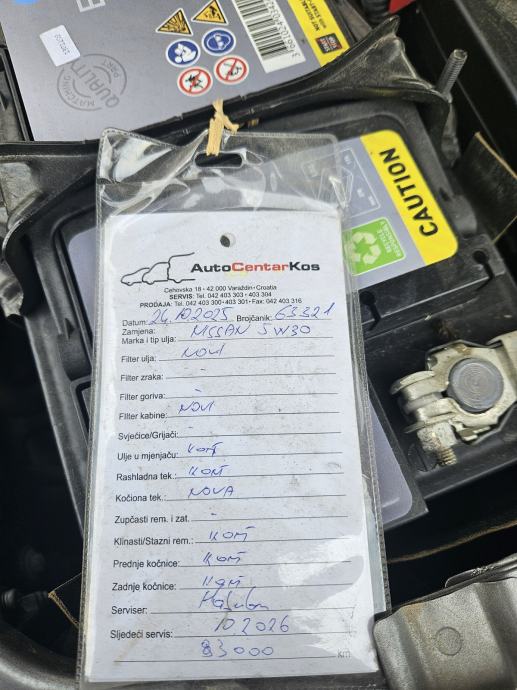 MATCHING QUALITY PART
CAUTION
RECYCLE RESPONSIBLY
AutoCentarKos
Cehovska 18 • 42 000 Varaždin • Croatia
SERVIS: Tel. 042 403 303 • 403 304
PRODAJA: Tel. 042 403 300 • 403 301 • Fax: 042 403 316
Datum: 24.10.2025 Brojčanik: 63321
Zamjena:
Marka i tip ulja: NISSAN 5W30
Filter ulja: NOVI
Filter zraka: -
Filter goriva: -
Filter kabine: NOVI
Svjećice/Grijači: -
Ulje u mjenjaču: KOM
Rashladna tek.: KOM
Kočiona tek.: NOVA
Zupčasti rem. i zat. -
Klinasti/Stazni rem.: KOM
Prednje kočnice: KOM
Zadnje kočnice: KOM
Serviser:
Sljedeći servis: 10.2026
83000 km